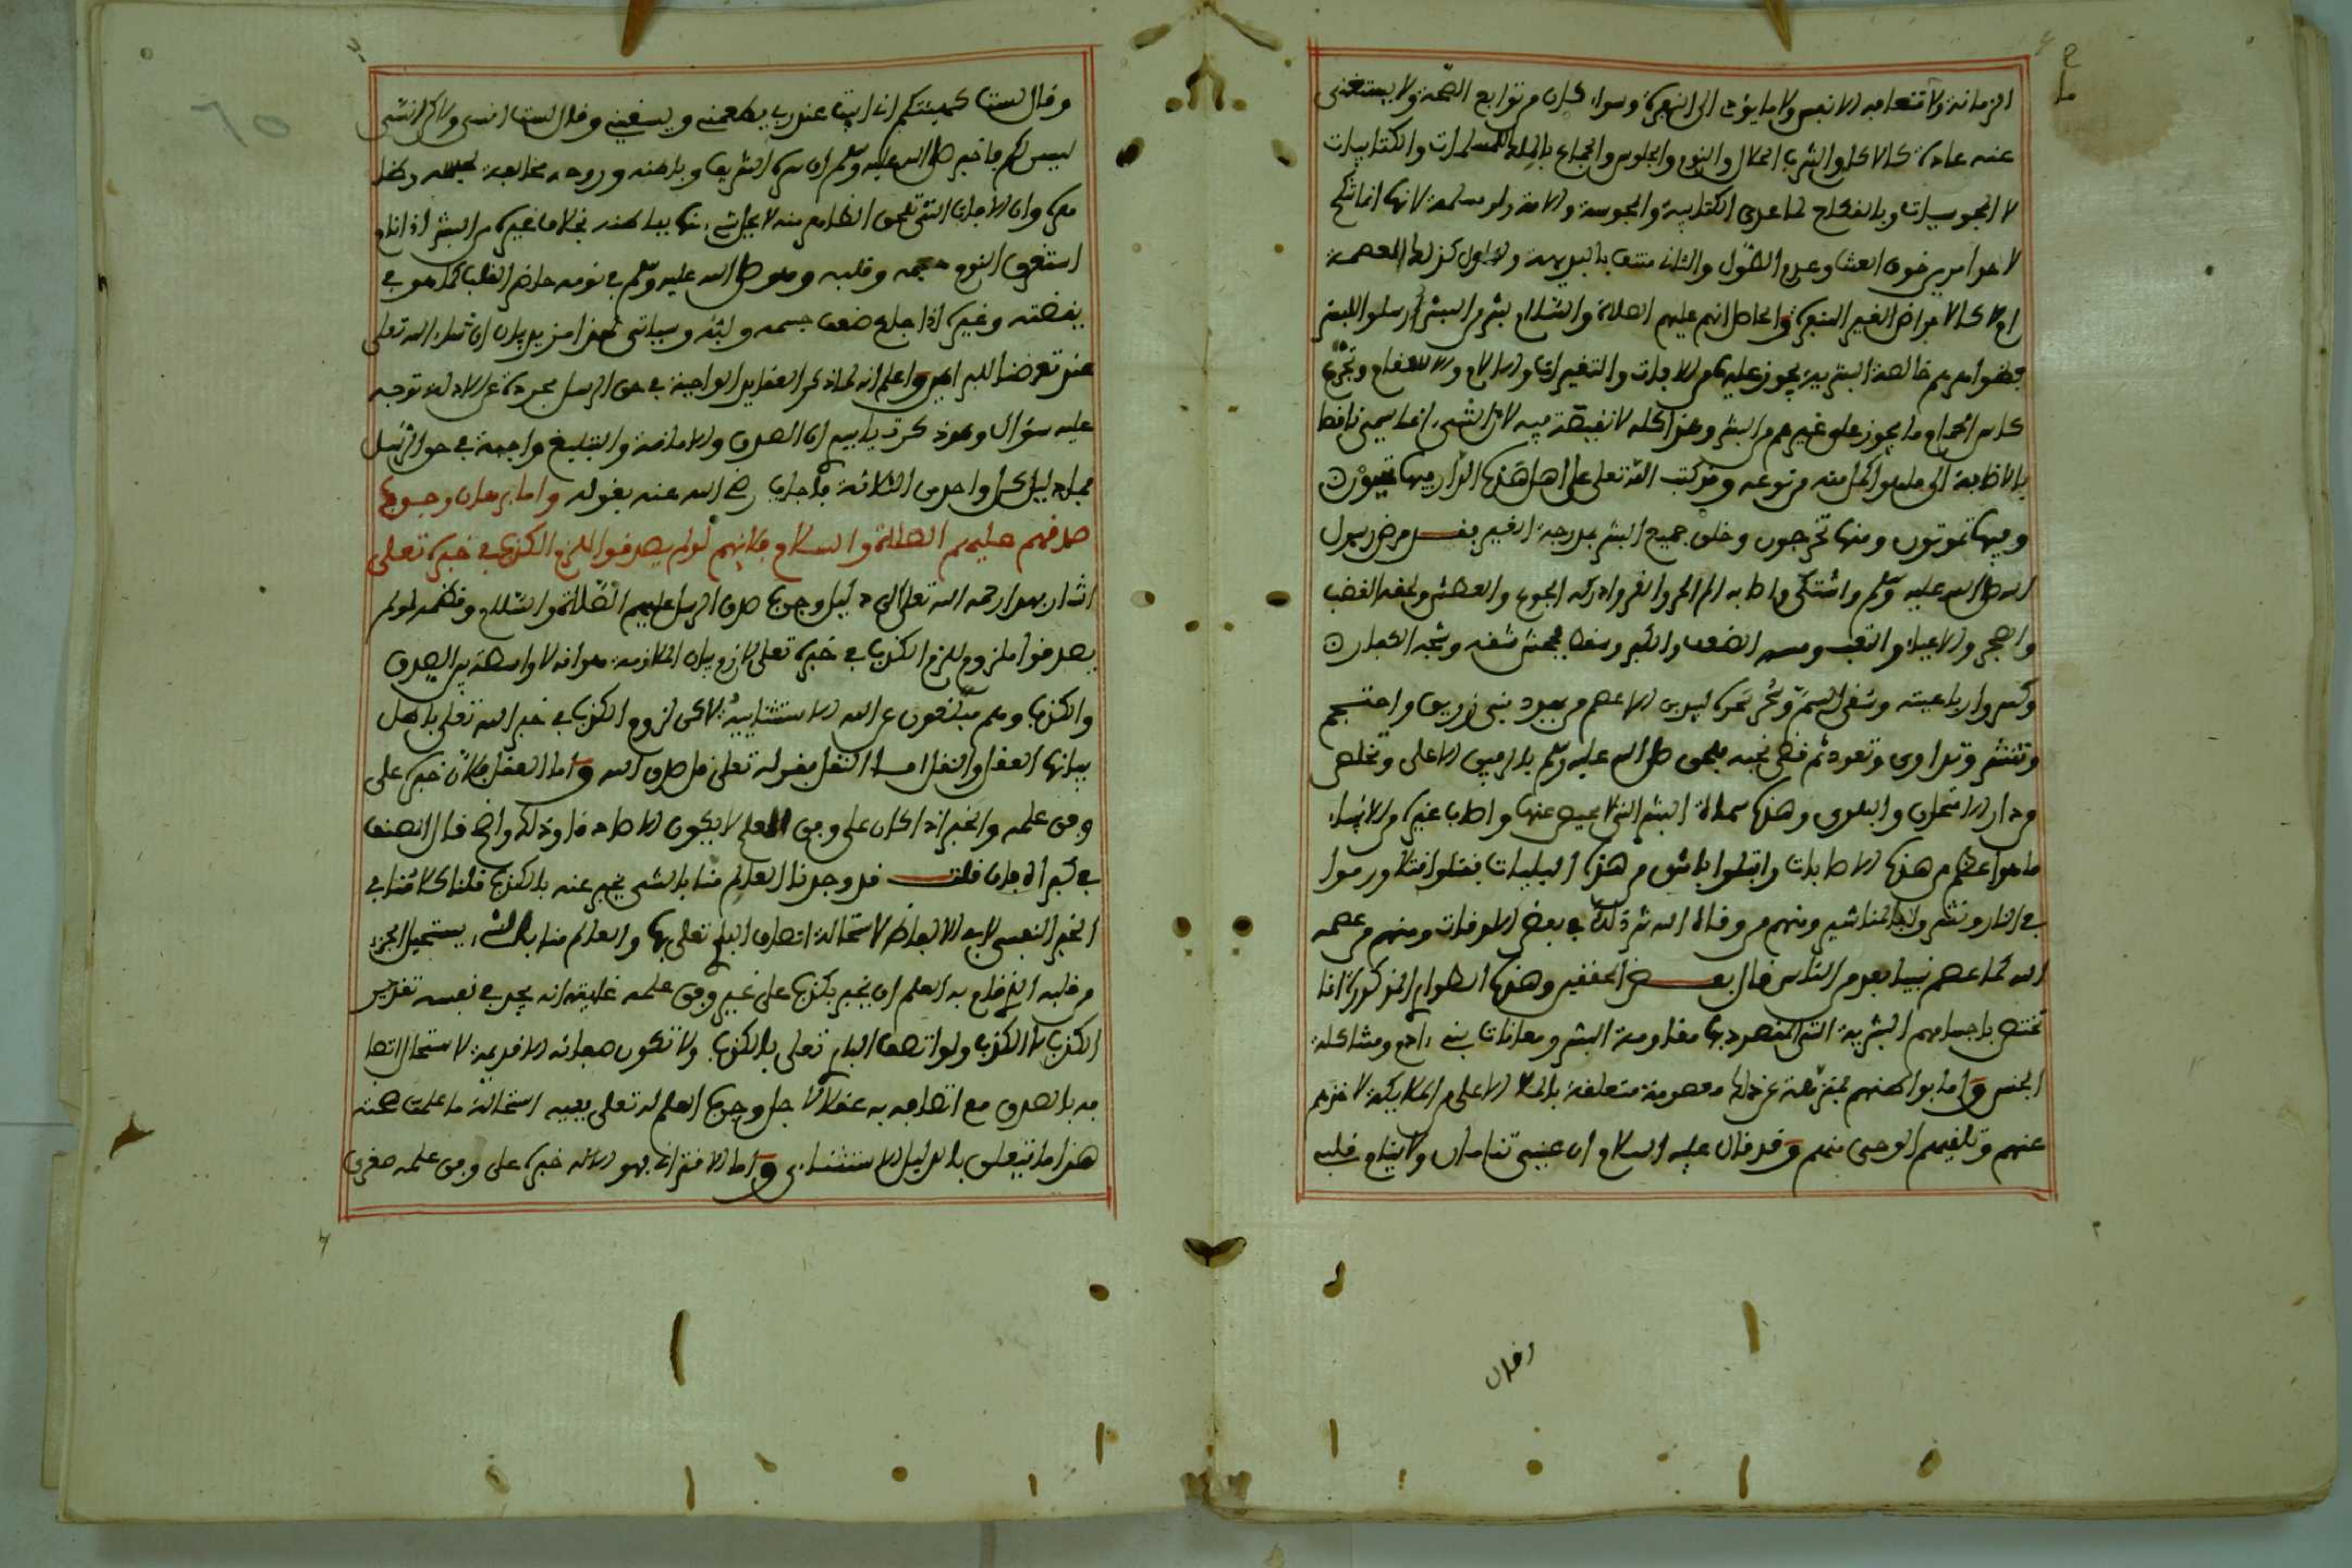 الزمانة ولا تتعامه الانفس ولا ما يؤدي الى النفرة وسواء كان من توابع الصحة ولا يستغنى
عنه عادة كالاكل والشرب الحلال والنوم والجلوس والجماع بالملك للمسلمات والكتابيات
لا المجوسيات وبالنكاح لما عدى الكتابية والمجوسية والامة ولو مسلمة لانها انما تنكح
لاحد امرين خوف العنت وعدم الطول والثاني منتف بالبديهة والاول كذلك للعصمة
ام لا كالامراض الغير المنفرة والحاصل انهم عليهم الصلاة والسلام بشر من البشر ارسلوا للبشر
فظواهرهم خالصة البشرية يجوز عليها من الافات والتغيرات والالام والاسقام وتجرع
كاس الحمام ما يجوز على غيرهم من البشر وهذا كله لا نقيصة فيه لان الشيء انما يسمى ناقصا
بالاضافة الى ما هو اكمل منه من نوعه وقد كتب الله تعالى على اهل هذه الدار فيها تحيون
وفيها تموتون ومنها تخرجون وخلق جميع البشر بمدرجة الغير فقد مرض رسول
الله صلى الله عليه وسلم واشتكى واصابه الم الحر والقر وادركه الجوع والعطش ولحقه الغضب
والضجر والاعياء والتعب ومسه الضعف والكبر وسقط فجحش شقه وشجه الكفار
وكسروا رباعيته وسقي السم وسحر سحره لبيد بن الاعصم من يهود بني زريق واحتجم
وتنشر وتداوى وتعوذ ثم قضى نحبه فلحق صلى الله عليه وسلم بالرفيق الاعلى وتخلص
من دار الامتحان والبلوى وهذه سمات البشر التي لا محيص عنها واصاب غيره من الانبياء
ما هو اعظم من هذه الاصابات وابتلوا باشق من هذه البليات فقتلوا قتلا ورموا
في النار ونشروا بالمناشير ومنهم من وقاه الله شر ذلك في بعض الاوقات ومنهم من عصمه
الله كما عصم نبينا بعد من الناس قال بعض المحققين وهذه الطوارئ المذكورة انما
تختص باجسامهم البشرية التي المقصود بها مقاومة البشر ومعانات بني ادم ومشاكلة
الجنس واما بواطنهم فمنزهة عن ذلك معصومة متعلقة بالملا الاعلى من الملايكة لاخذهم
عنهم وتلقيهم الوحي منهم وقد قال عليه السلام ان عيني تنامان ولا ينام قلبي
وقال
وقال لست كهيئتكم اني ابيت عند ربي يطعمني ويسقيني وقال لست انسى ولاكن انسى
ليستن بي فاخبر صلى الله عليه وسلم ان سره الشريف وباطنه وروحه مخالفة لجسمه
وان الافات التي تلحق الظاهر منه لا يحل شيء منها بباطنه بخلاف غيره من البشر اذا نام
استغرق النوم جسمه وقلبه وهو صلى الله عليه وسلم في نومه حاضر القلب كما هو في
يقضته وغيره اذا جاع ضعف جسمه وسياتي لهذا مزيد بيان ان شاء الله تعالى
عند تعرض واعلم انه لما ذكر العقايد الواجبة في حق الرسل مجردة عن الادلة توجه
عليه سؤال وهو ذكرت ياسيدي ان الصدق والامانة والتبليغ واجبة في حق الرسل
فما دليل كل واحد من الثلاثة فاجاب رضي الله عنه بقوله واما برهان وجوب
صدقهم عليهم الصلاة والسلام فلانهم لو لم يصدقوا للزم الكذب في خبره تعالى
اشار بهذا رحمه الله تعالى الى دليل وجوب صدق الرسل عليهم الصلاة والسلام ونظمه لو لم
يصدقوا للزم الكذب في خبره تعالى بيان الملازمة هو انه لا واسطة بين الصدق
والكذب وهم مبلغون عن الله الاستثنائية لاكن لزوم الكذب في خبر الله تعالى باطل
بيانها العقل والنقل اما النقل فقوله تعالى قل صدق الله واما العقل فلان خبره على
وفق علمه والخبر اذا كان على وفق العلم لا يكون الا صادقا وذلك واضح قال المصنف
في فلت قد وجدنا العالم منا بالشيء يخبر عنه بالكذب قلنا كلامنا في
الخبر النفسي لا في الالفاظ لاستحالة اتصاف الباري تعالى بها والعالم منا بالشيء يستحيل
من قلبه الذي قام به العلم ان يخبر بكذب على غير وفق علمه غايته انه يجد في نفسه تقدير
الكذب لا الكذب ولو اتصف الباري تعالى بالكذب ولا تكون صفاته الا قديمة لاستحال اتصا
فه بالصدق مع اتصافه به عقلا وجوب العلم له تعالى ففيه استحالة ما علمت صحته
هذا ما يتعلق بالدليل الاستثنائي واما الاقتراني فهو ان خبره على وفق علمه صغرى